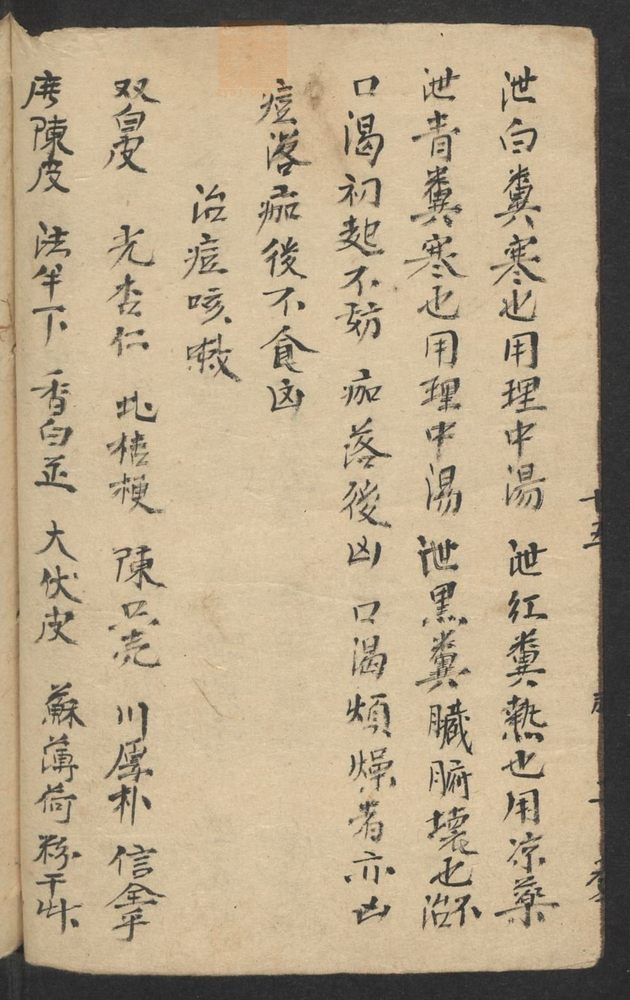 泄白糞寒也用理中湯 泄红糞熱也用凉藥
泄青糞寒也用理中湯 泄黒糞臓腑壊也不治
口渴初起不妨 痂落後凶 口渴煩燥者亦凶
痘落痂後不食凶
治痘咳嗽
双白皮 光杏仁 北桔梗 陳只壳 川厚朴 信前乎
広陳皮 法半下 香白芷 大伏皮 蘇薄荷 粉干草